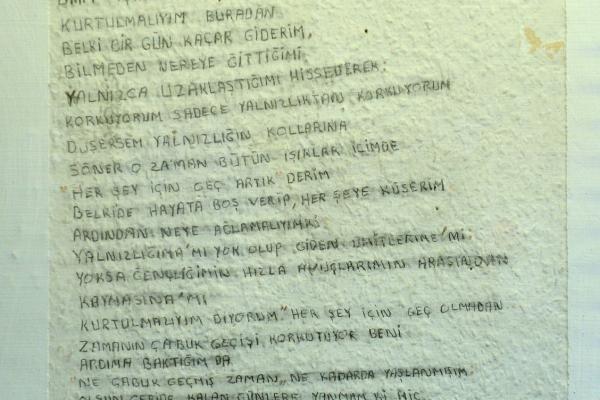 KURTULMALIYIM BURADAN
BELKİ BİR GÜN KAÇAR GİDERİM,
BİLMEDEN NEREYE GİTTİĞİMİ
YALNIZCA UZAKLAŞTIĞIMI HİSSEDEREK.
KORKUYORUM SADECE YALNIZLIKTAN KORKUYORUM
DÜŞERSEM YALNIZLIĞIN KOLLARINA
SÖNER O ZAMAN BÜTÜN IŞIKLAR İÇİMDE
"HER ŞEY İÇİN GEÇ ARTIK" DERİM
BELKİDE HAYATA BOŞ VERİP, HER ŞEYE KÜSERİM
ARDINDAN NEYE AĞLAMALIYIMKİ
YALNIZLIĞIMA'MI YOK OLUP GİDEN ÜMİTLERİNE'Mİ
YOKSA GENÇLİĞİMİN HIZLA AVUÇLARIMIN ARASINDAN
KAYMASINA'MI
KURTULMALIYIM DİYORUM "HER ŞEY İÇİN GEÇ OLMADAN
ZAMANIN ÇABUK GEÇİŞİ KORKUTUYOR BENİ
ARDIMA BAKTIĞIM DA
"NE ÇABUK GEÇMİŞ ZAMAN,, NE KADARDA YAŞLANMIŞIM
OLSUN GERİDE KALAN GÜNLERE YANMAM Kİ HİÇ